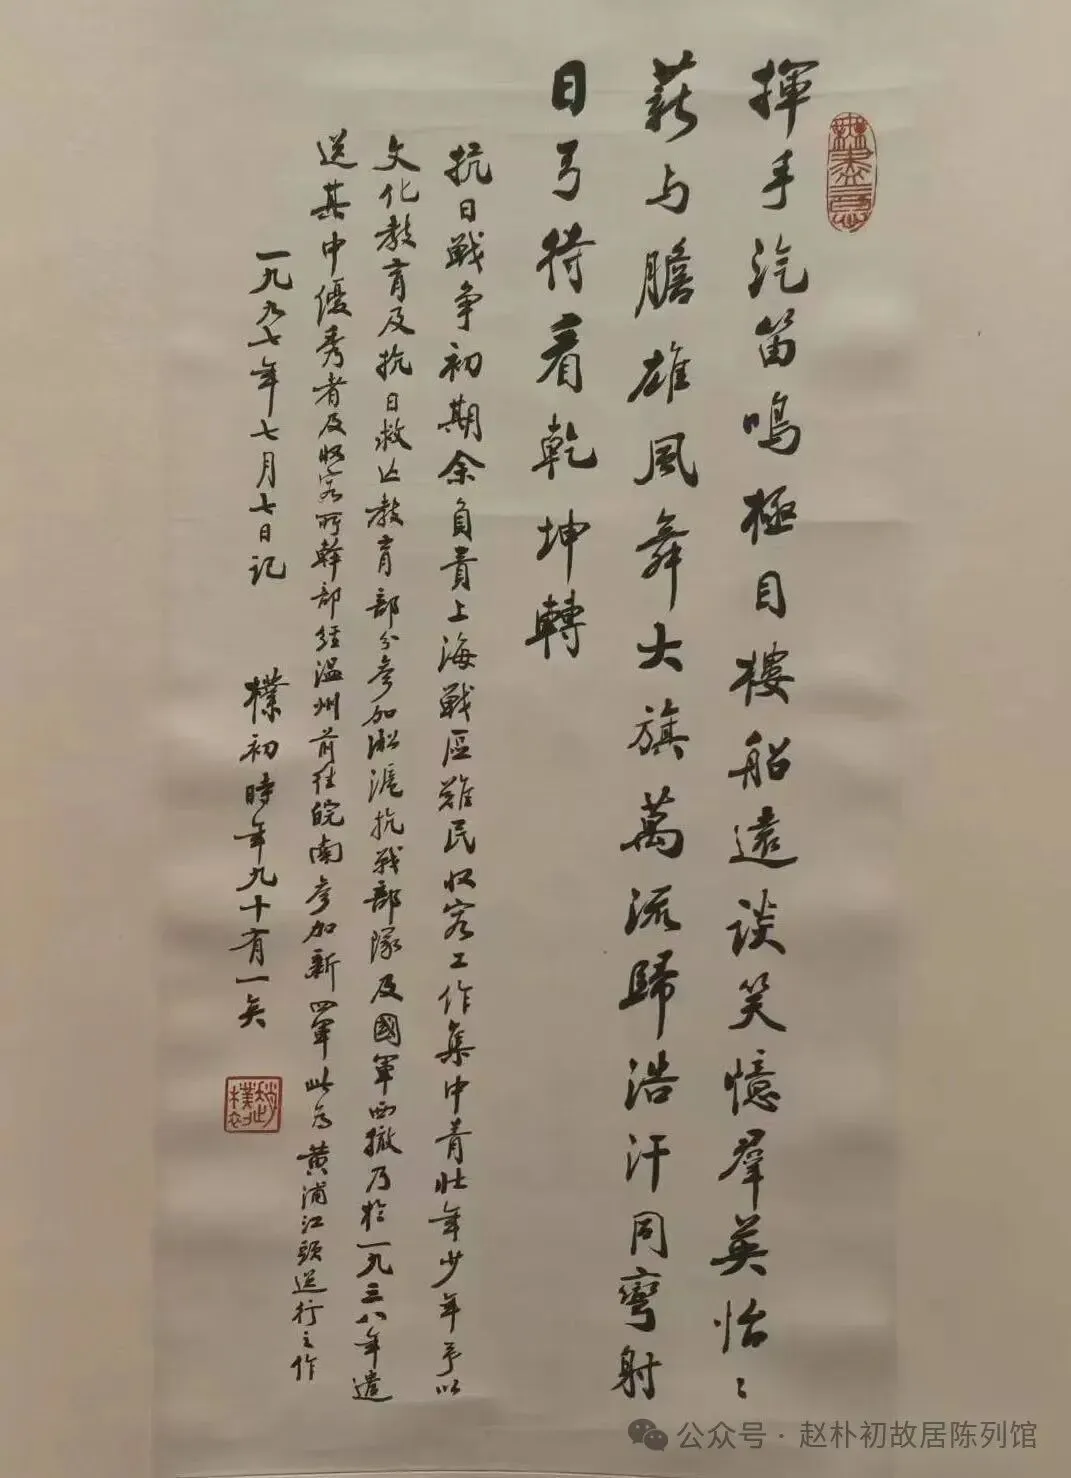 無盡意
揮手汽笛鳴極目樓船遠談笑憶羣英怡〻
薪与膽雄風舞大旗萬流歸浩汗同彎射
日弓待看乾坤轉
抗日戰争初期余負責上海戰區難民收容工作集中青壯年少年予以
文化教育及抗日救亡教育部分参加淞滬抗戰部隊及國軍西撤乃於一九三八年遣
送其中優秀者及收容所幹部經温州前往皖南参加新四軍此为黄浦江頭送行之作
一九九七年七月七日記 樸初時年九十有一矣
趙樸初
公众号·赵朴初故居陈列馆